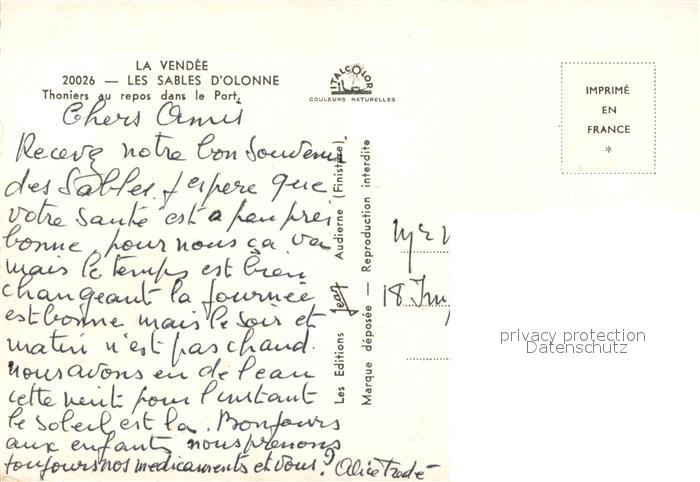 LA VENDÉE
20026 — LES SABLES D'OLONNE
Thoniers au repos dans le Port.
ITALCOLOR
COULEURS NATURELLES
IMPRIMÉ
EN
FRANCE
*
Chers Amis
Recevez notre bon Souvenir
des Sables. J'espere que
votre Santé est a peu prei
bonne, pour nous ça va
mais le temps est bien
changeant la journée
est bonne mais le soir et
matin n'est pas chaud.
nous avons eu de l'eau
cette nuit pour l'instant
le soleil est la. Bonjours
aux enfants, nous prenons
toujours nos medicaments et vous?
Alice
Les Editions Jean Audierne (Finistère).
Marque déposée — Reproduction interdite
18
privacy protection
Datenschutz